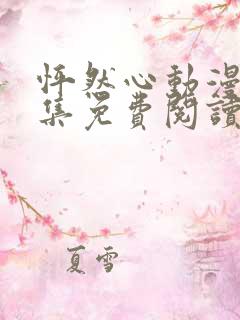 怦然心動漫
集免費閱讀
夏雪